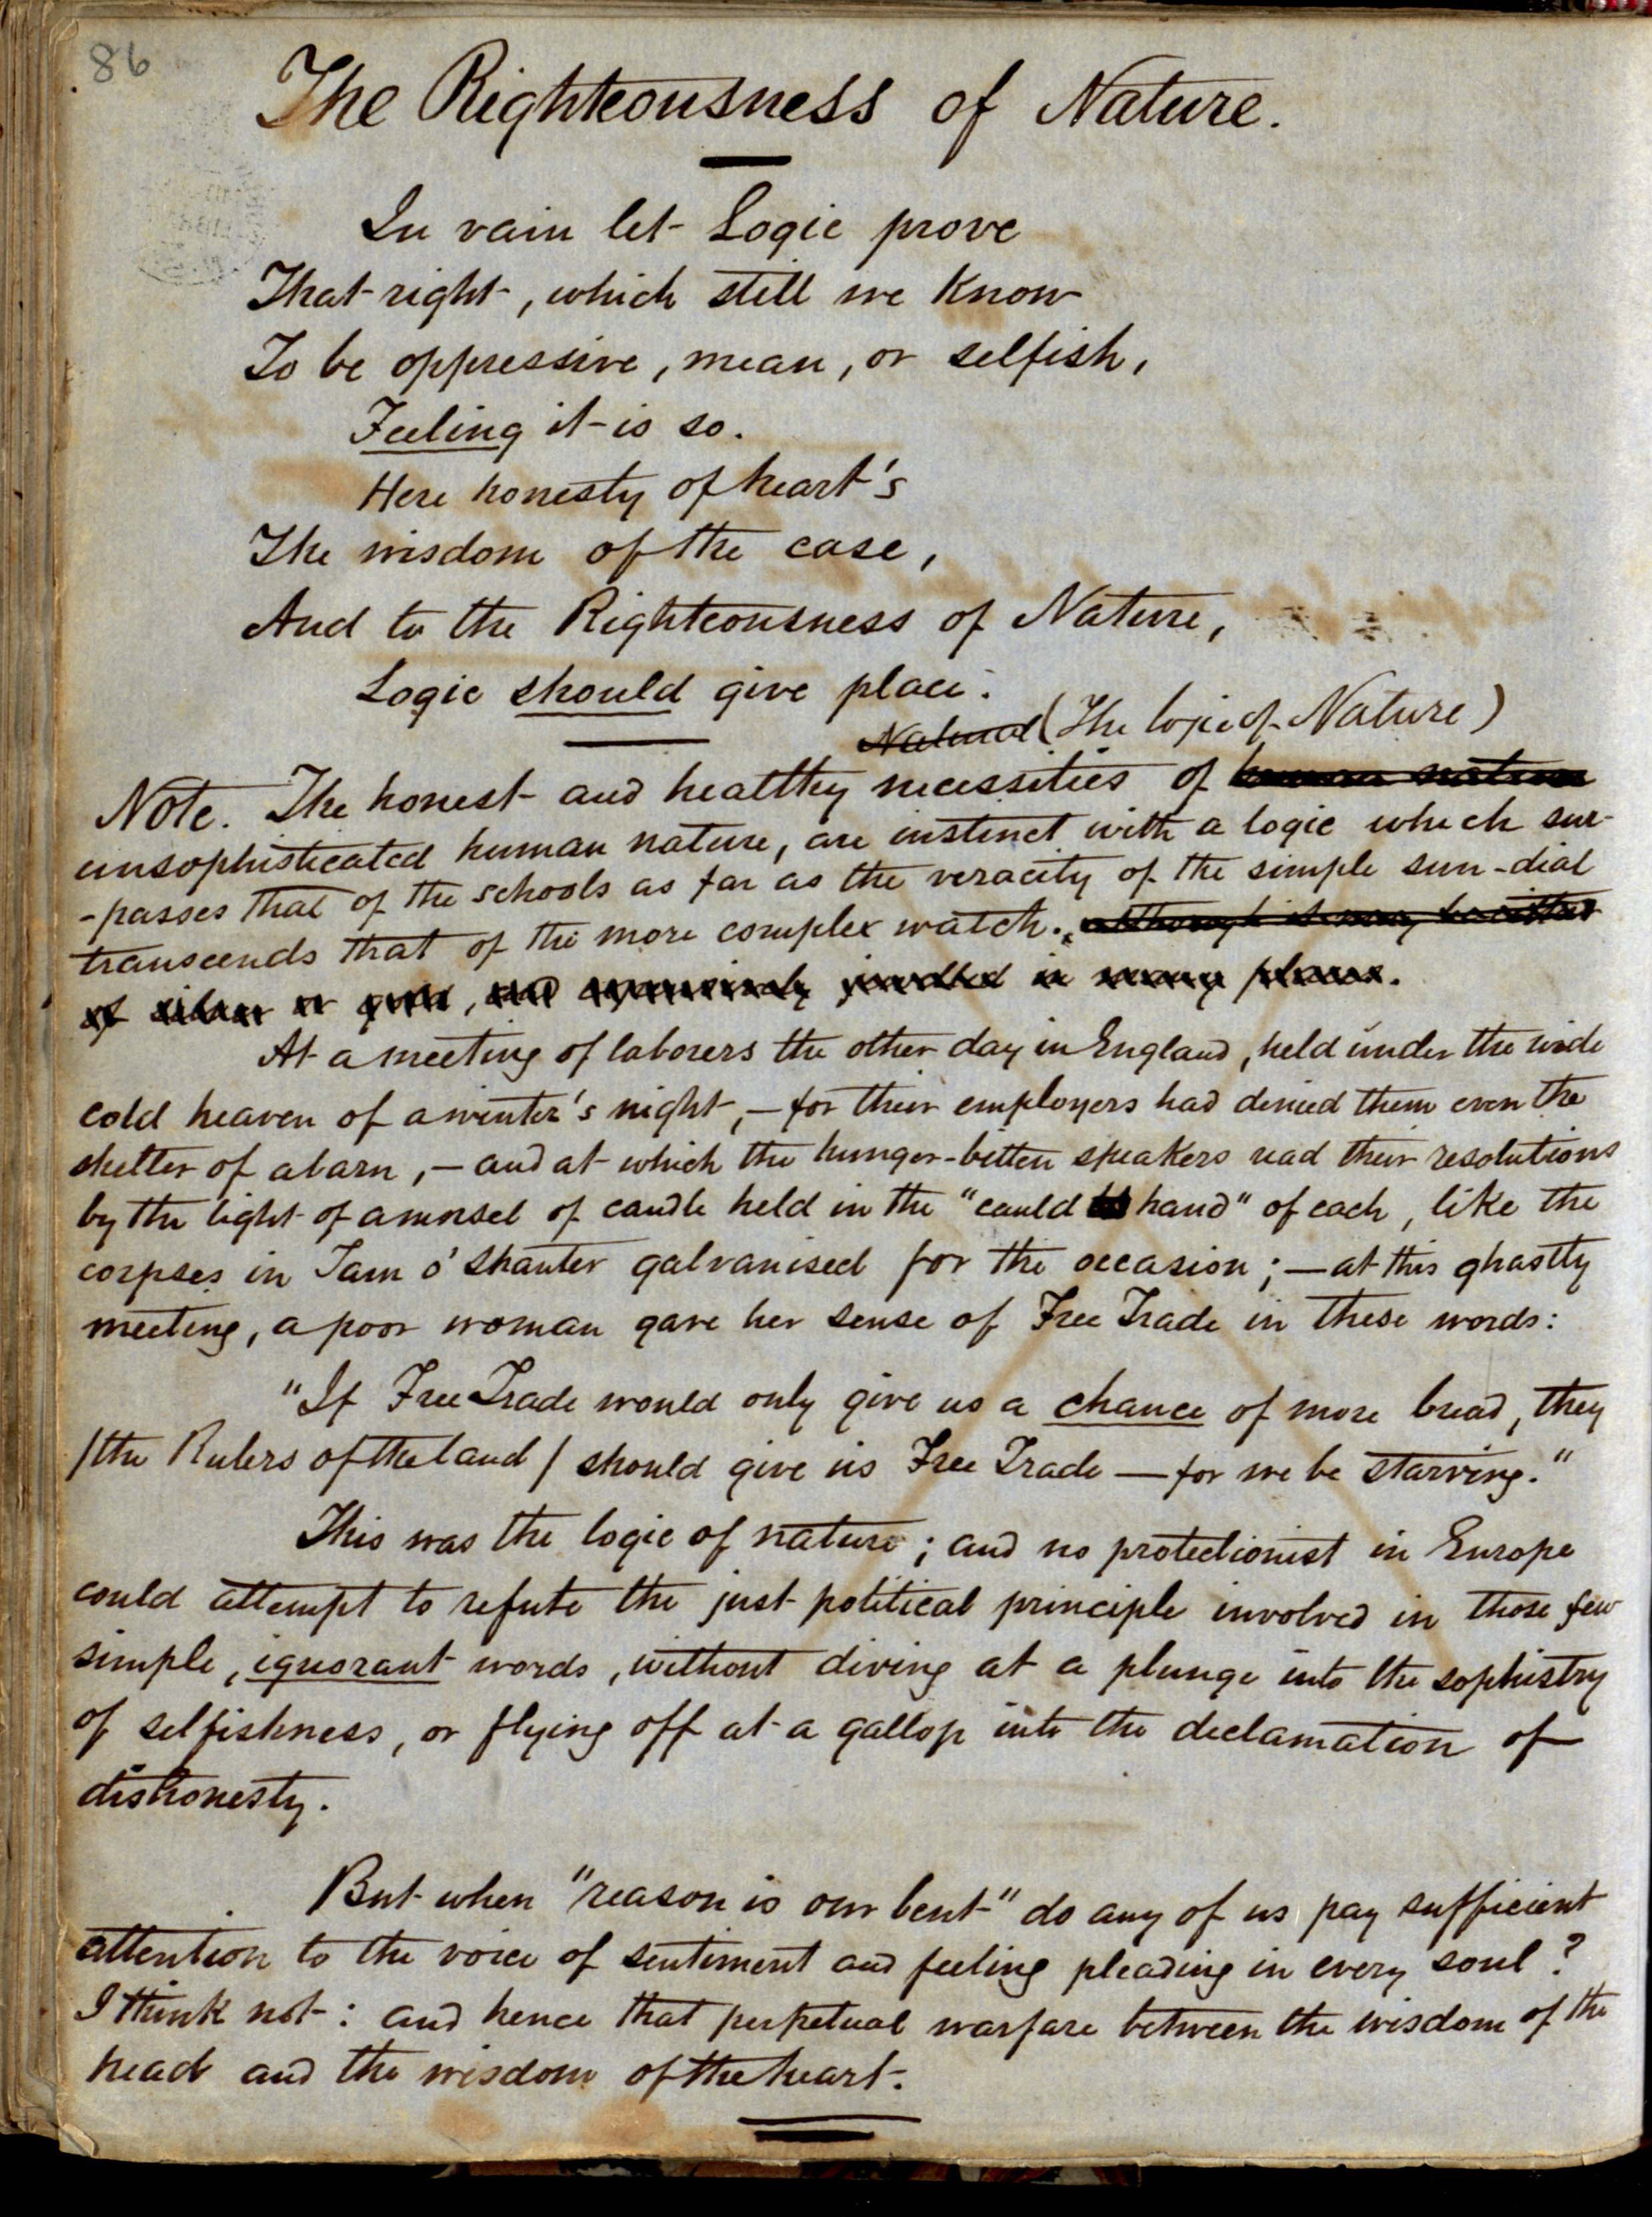 86
The Righteousness of Nature.
In vain let Logic prove
That right, which still we know
To be oppressive, mean, or selfish,
Feeling it is so.
Here honesty of heart's
The wisdom of the case,
And to the Righteousness of Nature,
Logic should give place.
Natural (The logic of Nature)
Note. The honest and healthy necessities of human nature
unsophisticated human nature, are instinct with a logic which sur-
-passes that of the schools as far as the veracity of the simple sun-dial
transcends that of the more complex watch. although it may be either
of silver or gold, and expensively jewelled in many places.
At a meeting of laborers the other day in England, held under the wide
cold heaven of a winter's night, — for their employers had denied them even the
shelter of a barn, — and at which the hunger-bitten speakers read their resolutions
by the light of a morsel of candle held in the "cauld hand" of each, like the
corpses in Tam o' Shanter galvanised for the occasion; — at this ghastly
meeting, a poor woman gave her sense of Free Trade in these words:
"If Free Trade would only give us a chance of more bread, they
/the Rulers of the land/ should give us Free Trade — for we be starving."
This was the logic of nature; and no protectionist in Europe
could attempt to refute the just political principle involved in those few
simple, ignorant words, without diving at a plunge into the sophistry
of selfishness, or flying off at a gallop into the declamation of
dishonesty.
But when "reason is our bent" do any of us pay sufficient
attention to the voice of sentiment and feeling pleading in every soul?
I think not: and hence that perpetual warfare between the wisdom of the
head and the wisdom of the heart.